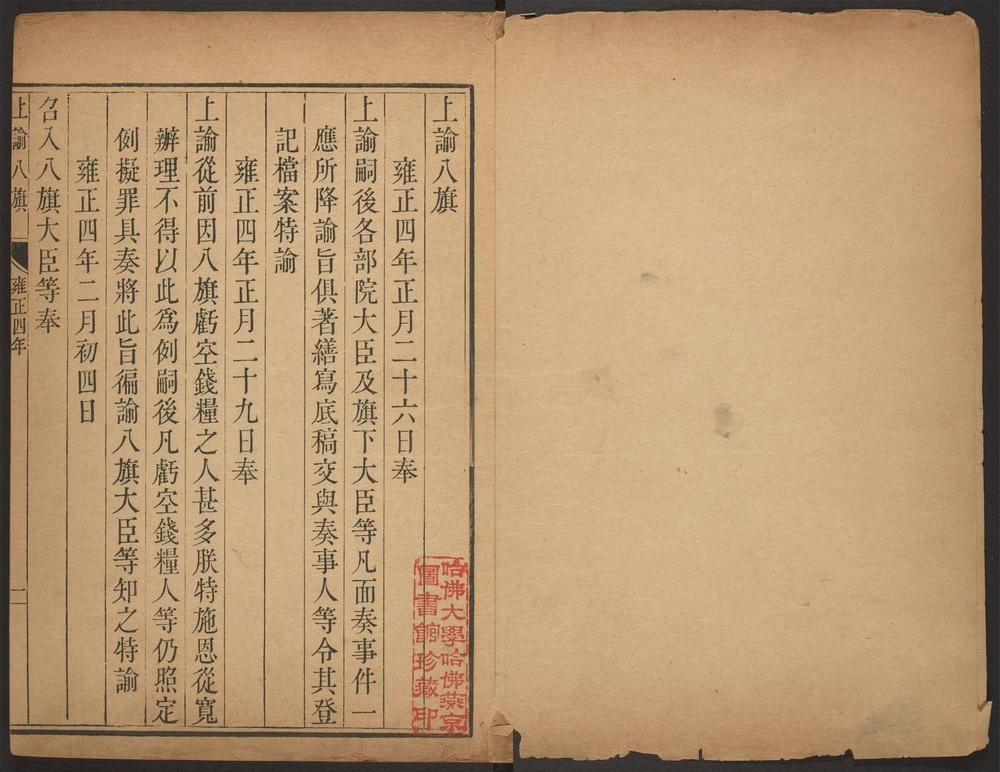 上諭八旗
雍正四年正月二十六日奉
上諭嗣後各部院大臣及旗下大臣等凡面奏事件一
應所降諭旨俱著繕寫底稿交與奏事人等令其登
記檔案特諭
雍正四年正月二十九日奉
上諭從前因八旗虧空錢糧之人甚多朕特施恩從寬
辦理不得以此爲例嗣後凡虧空錢糧人等仍照定
例擬罪具奏將此旨徧諭八旗大臣等知之特諭
雍正四年二月初四日
召入八旗大臣等奉
上諭八旗
雍正四年
哈佛大學哈佛燕京
圖書館珍藏印